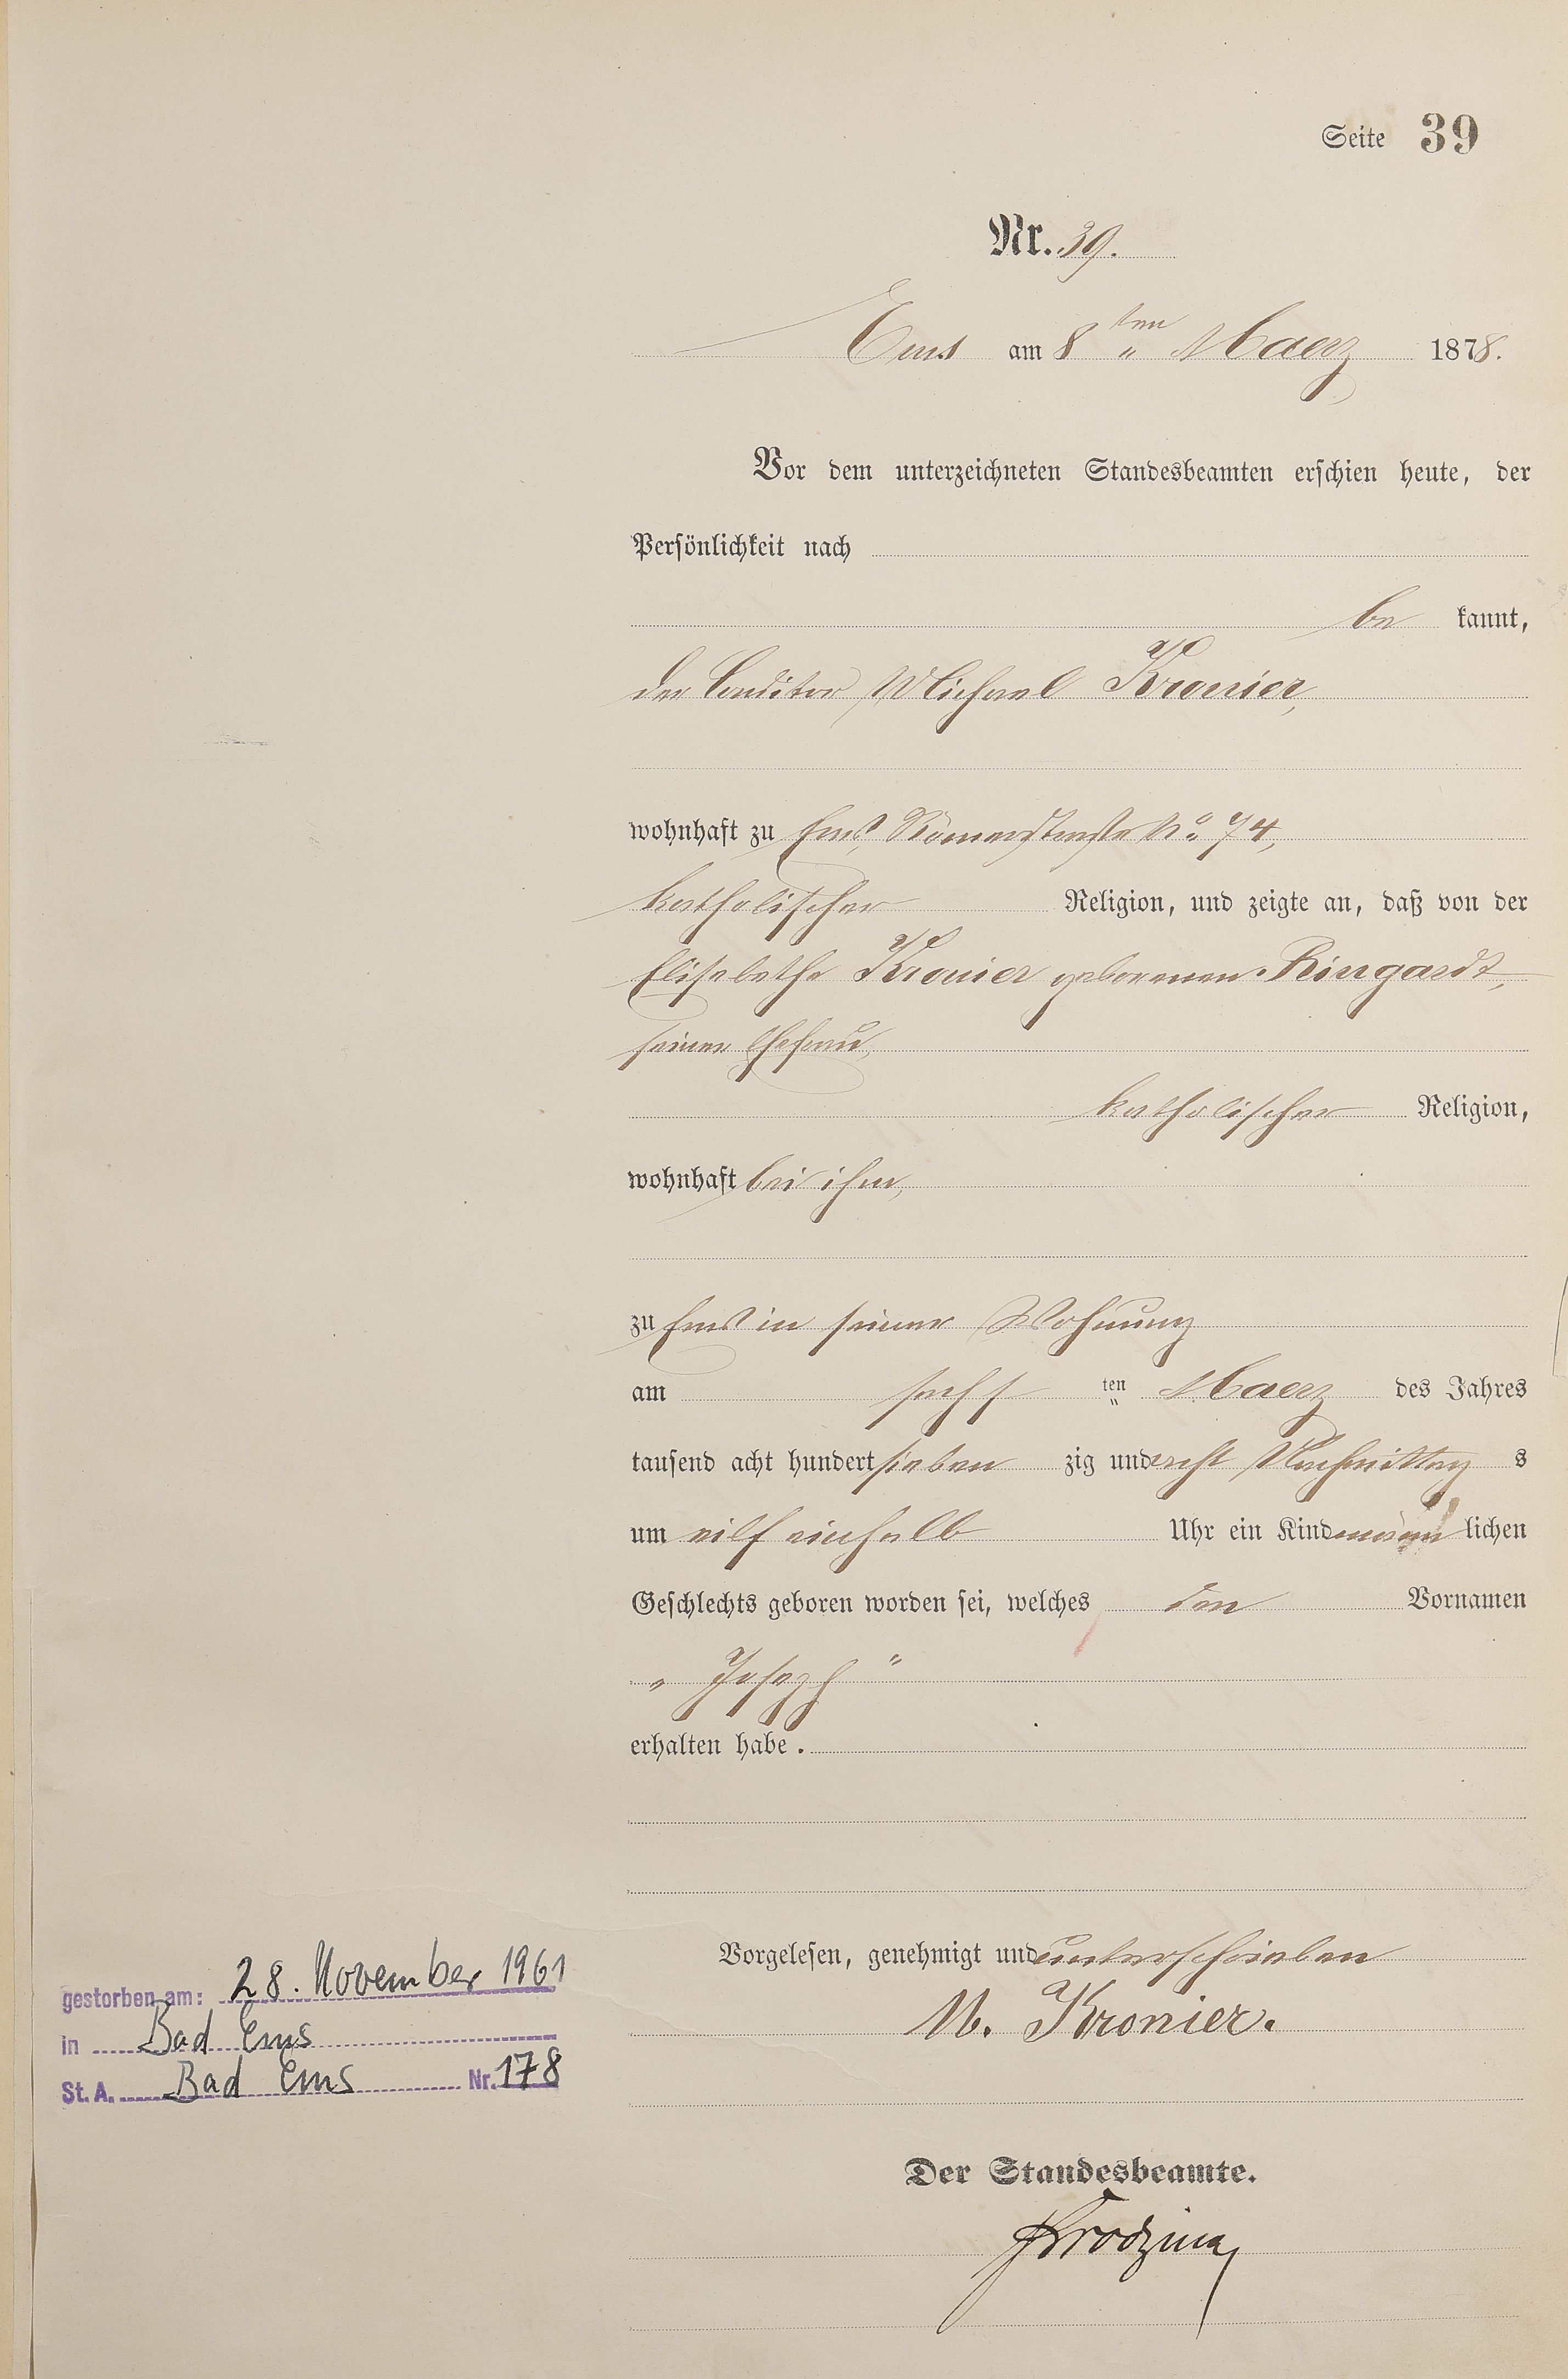 Seite 39
Nr. 39.
Ems am 8ten Maerz 1878.
Vor dem unterzeichneten Standesbeamten erschien heute, der
Persönlichkeit nach
be kannt,
der Conditor Michael Kronier,
wohnhaft zu Ems, Römerstraße No. 74,
katholischer Religion, und zeigte an, daß von der
Elisabethe Kronier geborenen Ringardt,
seiner Ehefrau,
katholischer Religion,
wohnhaft bei ihm,
zu Ems in seiner Wohnung
am sechs ten Maerz des Jahres
tausend acht hundert sieben zig und acht Nachmittag s
um eilf einhalb Uhr ein Kind männ lichen
Geschlechts geboren worden sei, welches den Vornamen
„ Joseph "
erhalten habe.
Vorgelesen, genehmigt und unterschrieben
M. Kronier.
Der Standesbeamte.
gestorben am: 28. November 1961
in Bad Ems
St. A. Bad Ems Nr. 178